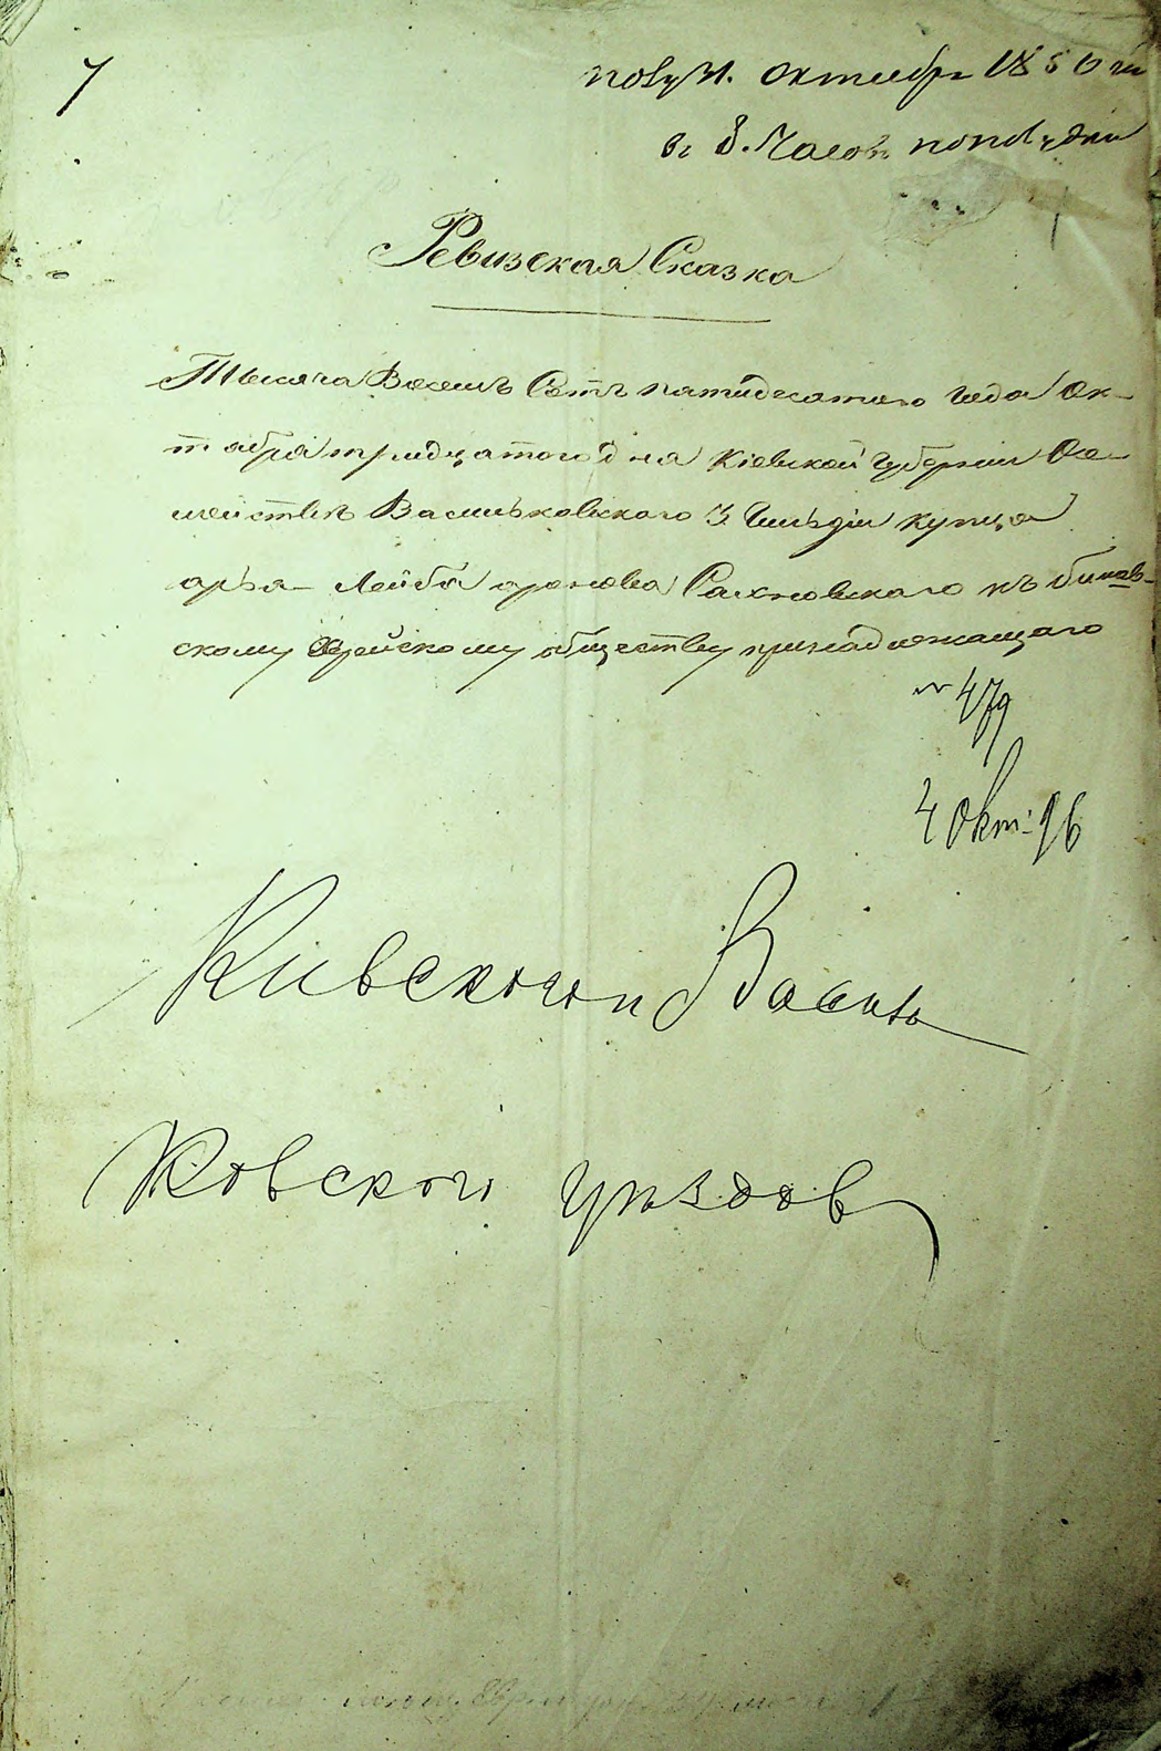 7
октября 1850 го
в 8. Часов пополудни
Ревизская Сказка
Тысяча Восемь Сотъ пятидесятаго Года Ок-
тября тридцатого дня Кіевской Губерніи
Васильковского 3 Гильдіи купца
арья- Лейба аронова Рахновского къ
скому Еврейскому обществу принадлежащаго
№ 479
4 Окт: 96
Киевского и Василь
Ковского уездов